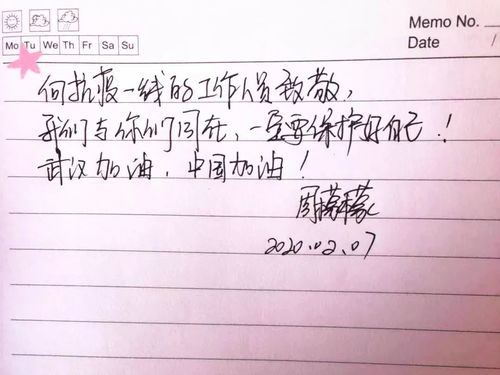 Memo No.
Mo Tu We Th Fr Sa Su
Date /
向抗疫一线的工作人员致敬,
我们与你们同在,一定要保护好自己!
武汉加油,中国加油!
周檬檬
2020.02.07